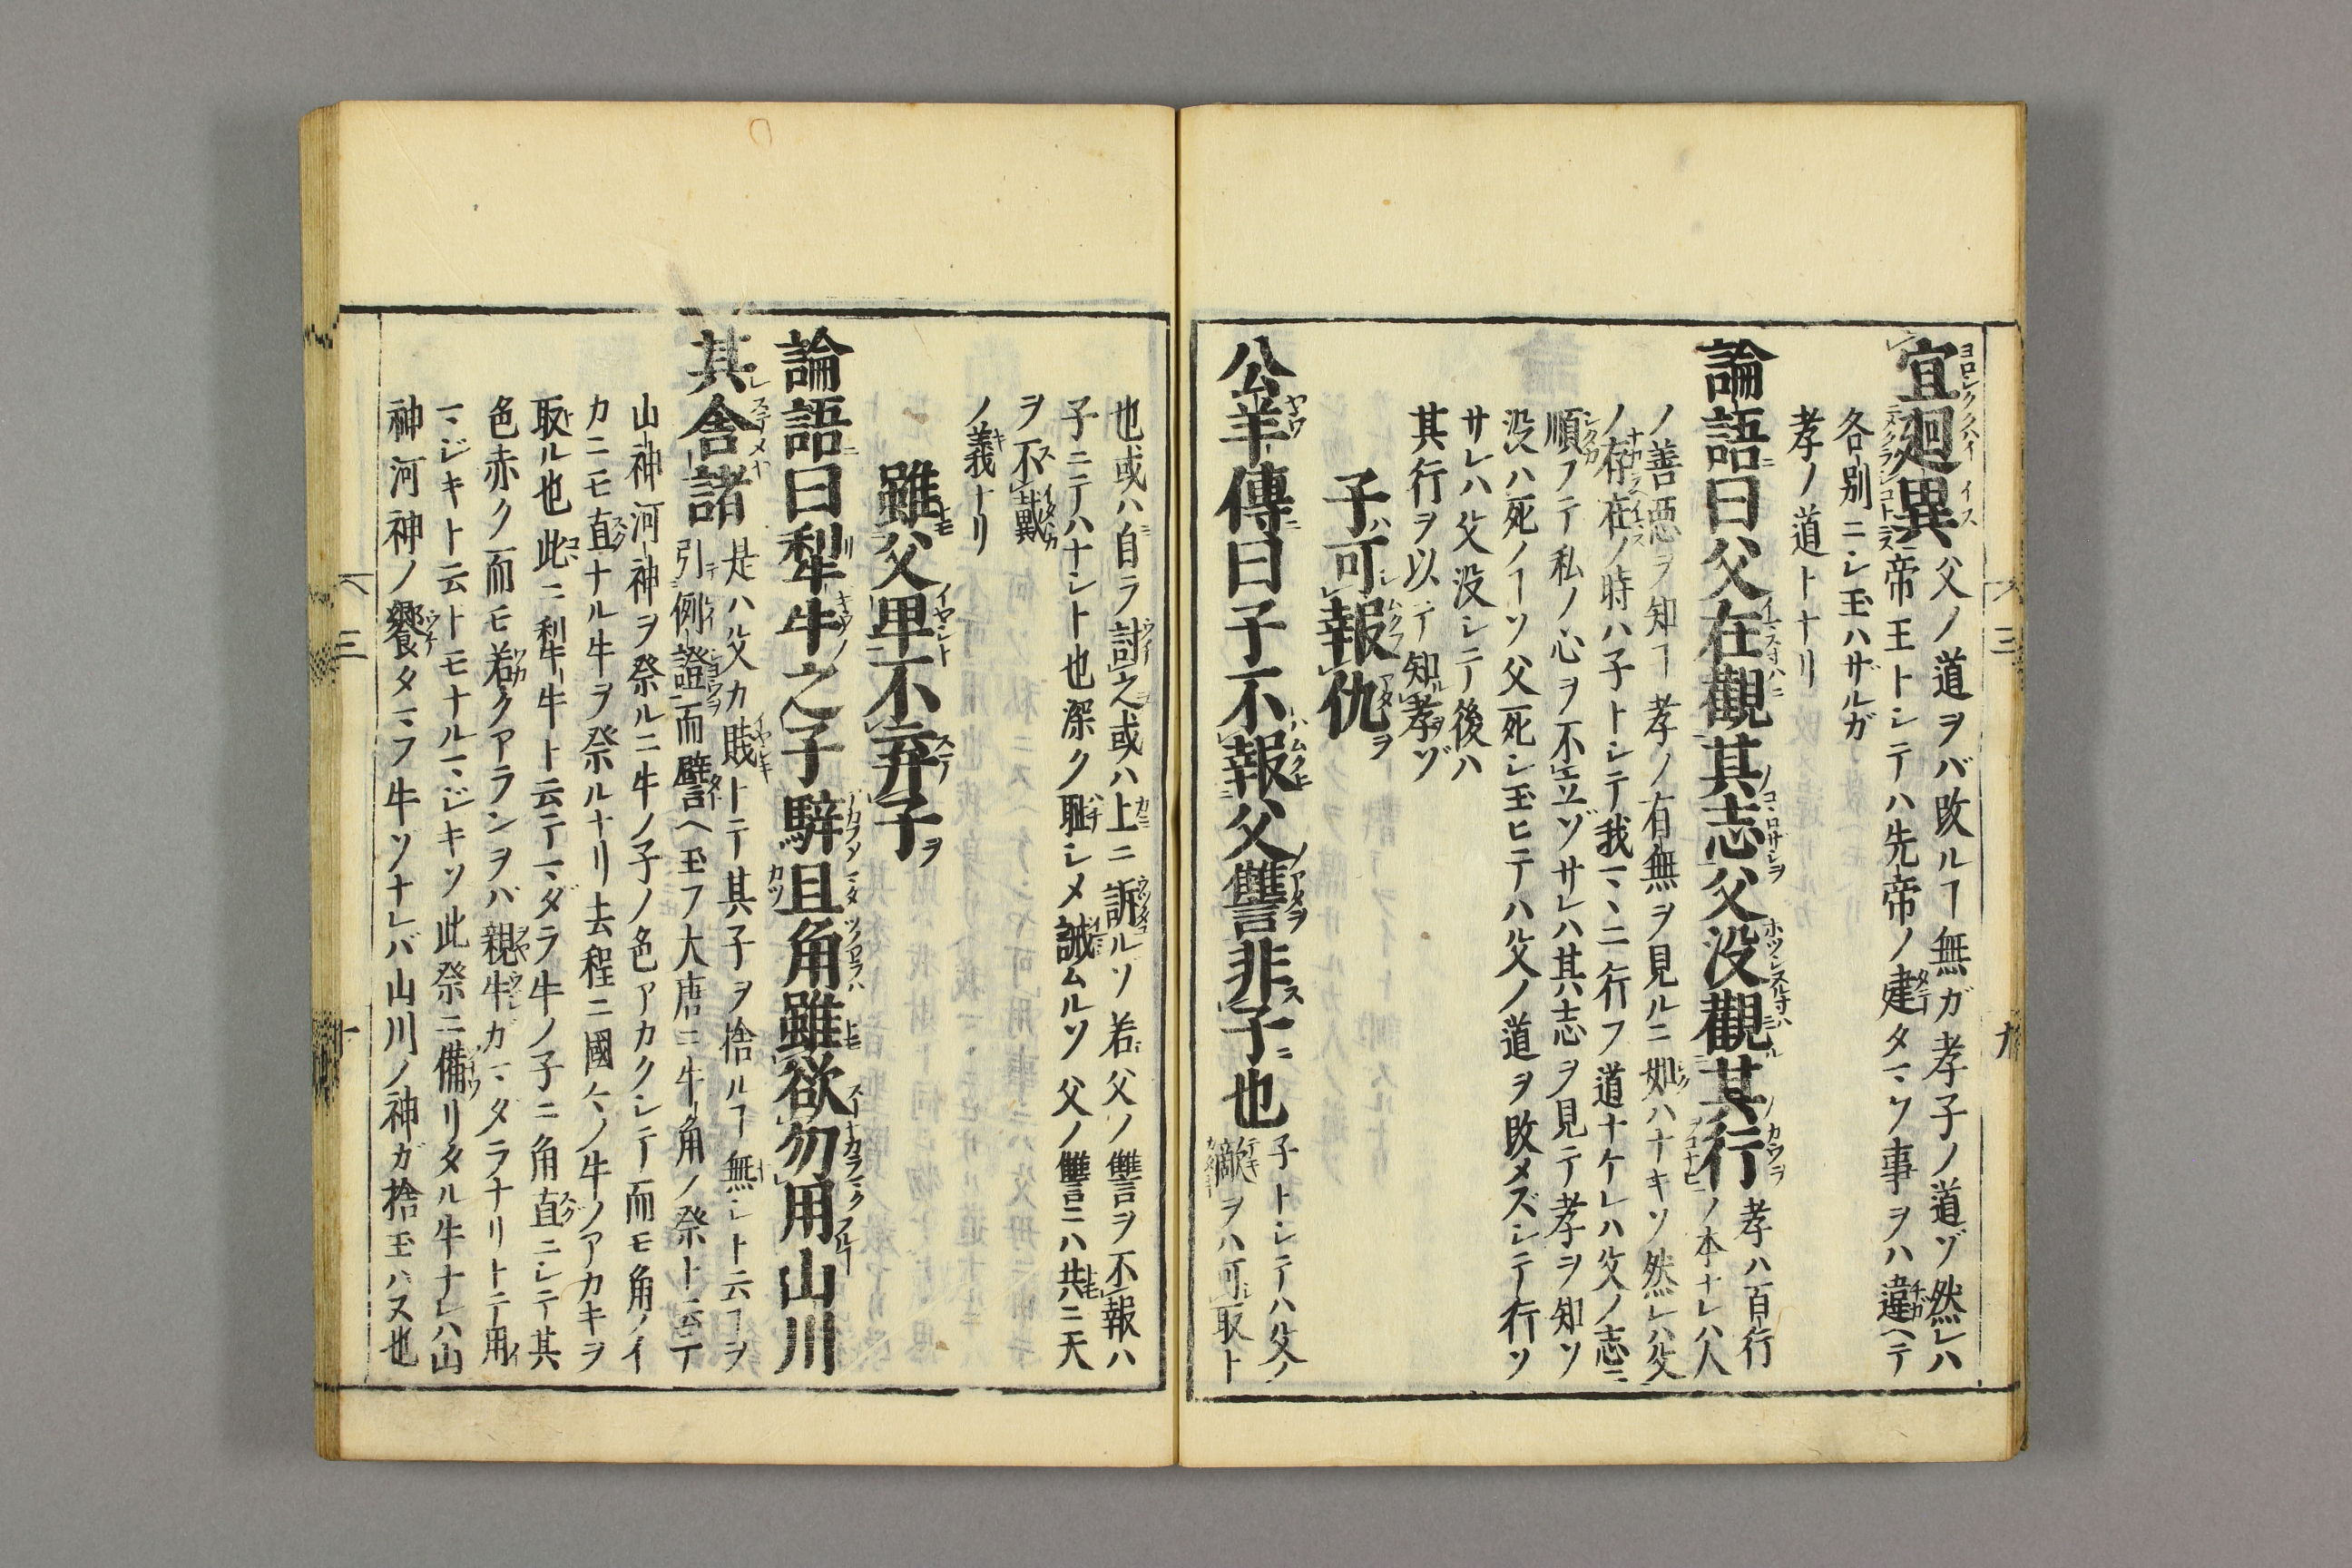 宜廻異父ノ道ヲバ改ルヿ無ガ孝子ノ道ゾ然レハ
帝王トシテハ先帝ノ建タマヘ事ヲハ違ヘテ
各別ニシ玉ハザルガ
孝ノ道トナリ
論語曰父在觀其志父没觀其行孝ハ百行
ノ本ナレハ人
ノ善悪ヲ知ヿ孝ノ有無ヲ見ルニ如ハナキソ然レハ父
ノ存在ノ時ハ子トシテ我マヽニ行フ道ナケレハ父ノ志ニ
順フテ私ノ心ヲ不立ゾサレハ其志ヲ見テ孝ヲ知ソ
没ハ死ノヿソ父死シ玉ヒテハ父ノ道ヲ改メズシテ行ソ
サレハ父没シテ後ハ
其行ヲ以テ知孝ヲゾ
子可報仇
公羊傳曰子不報父讐非子也子トシテハ父ノ
敵ヲハ可取ト
三
九
也或ハ自ラ討之或ハ上ニ訴ルソ若父ノ讐ヲ不報ハ
子ニテハナシト也深ク耻シメ誡ムルソ父ノ讐ニハ共ニ天
ヲ不戴
ノ義トリ
雖父卑不弃子
論語曰犁牛之子騂且角雖欲勿用山川
其舎諸是ハ父カ賤トテ其子ヲ捨ルヿ無シト云ヿヲ
引例證而譬ヘ玉フ大唐ニ牛角ノ祭ト云テ
山神河神ヲ祭ルニ牛ノ子ノ色アカクシテ而モ角ノイ
カニモ直ナル牛ヲ祭ルナリ去程ニ國々ノ牛ノアカキヲ
取ル也此ニ犁牛ト云テマダラ牛ノ子ニ角直ニシテ其
色赤ク而モ若クアランヲバ親牛ガマダラナリトテ用
マジキト云トモナルマジキソ此祭ニ備リタル牛ナレハ山
神河神ノ饗タマフ牛ソナレバ山川ノ神ガ捨玉ハヌ也
三
十